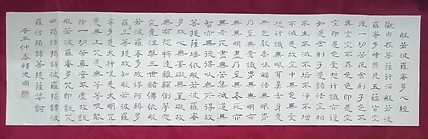 般若波羅蜜多心經
觀自在菩薩行深般若波
羅蜜多時照見五蘊皆空
度一切苦厄舍利子色不
異空空不異色色即是空
空即是色受想行識亦復
如是舍利子是諸法空相
不生不滅不垢不淨不增
不減是故空中無色無受
想行識無眼耳鼻舌身意
無色聲香味觸法無眼界
乃至無意識界無無明
亦無無明盡乃至無老死
亦無老死盡無苦集滅道
無智亦無得以無所得故
菩提薩埵依般若波羅蜜
多故心無罣礙無罣礙故
無有恐怖遠離顛倒夢想
究竟涅槃三世諸佛依般
若波羅蜜多故得阿耨多
羅三藐三菩提故知般若波
羅蜜多是大神咒是大明咒
是無上咒是無等等咒能
除一切苦真實不虛故說
般若波羅蜜多咒即說咒
曰揭諦揭諦波羅揭諦波
羅僧揭諦菩提薩婆訶